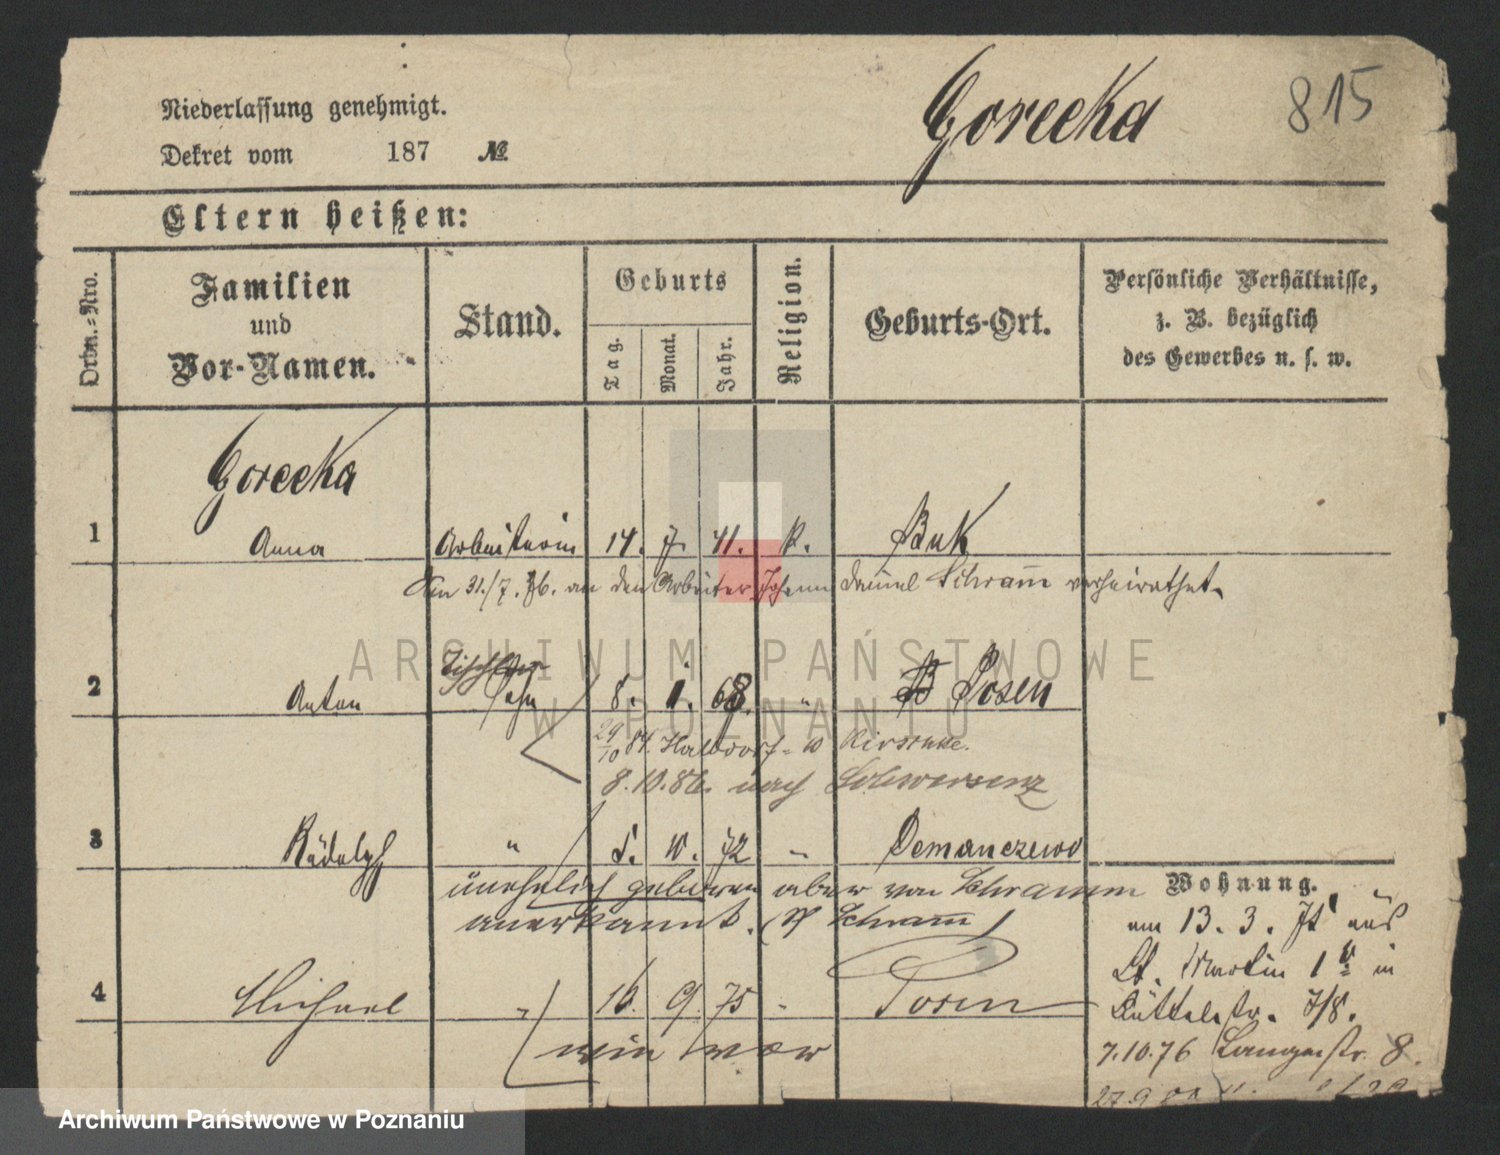 Niederlassung genehmigt.
Dekret vom 187 №
Gorecka
815
Eltern heißen:
Ordn.=Nro.
Familien
und
Vor-Namen.
Stand.
Geburts
Tag.
Monat.
Jahr.
Religion.
Geburts-Ort.
Persönliche Verhältnisse,
z. B. bezüglich
des Gewerbes u. s. w.
Gorecka
1 Anna Arbeiterin 14. 7. 41. k. Buk
Am 31./7. 76. an den Arbeiter Johann Daniel Schram̄ verheirathet.
Tischler
2 Anton Sohn 8. 1. 68. " B Posen
29/10 84
8.10.86. nach Schwersenz
3 Rudolph " 5. 10. 72 " Demanczewo
unehelich geboren aber von Schramm
anerkannt. (Schram̄)
4 Michael " 16. 9. 75 " Posen
wie vor
Wohnung.
am 13. 3. 75 aus
St. Martin 1 in
Büttelstr. 7/8.
7.10.76 Langestr. 8.
27.9
ARCHIWUM PAŃSTWOWE
W POZNANIU
Archiwum Państwowe w Poznaniu